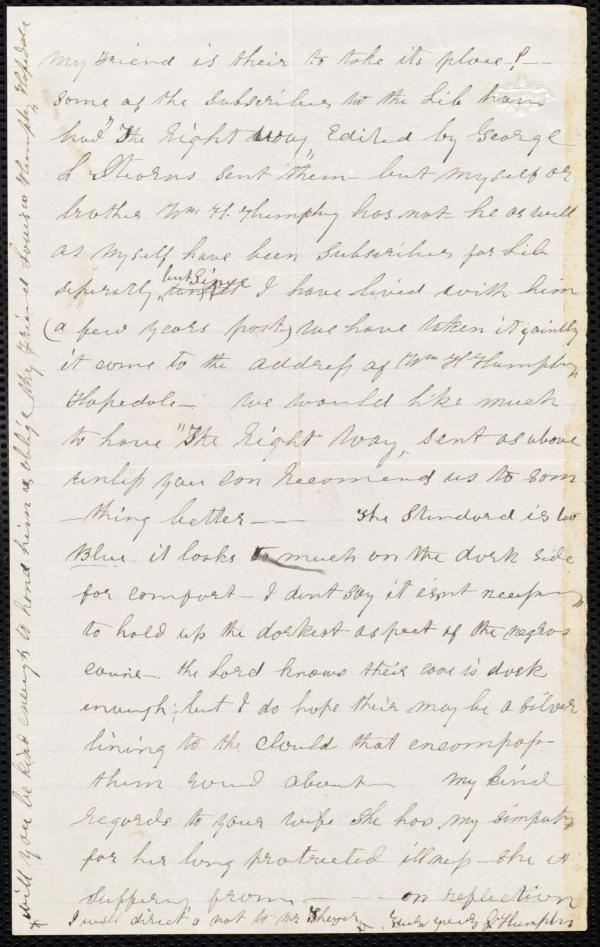 My Friend is their to take its place?—
some of the Subscribers to the Lib have
had "The Right Way" Edited by George
L Stearns sent them — but myself or
brother Wm. H. Humphrey has not — he as well
as myself have been Subscribers for Lib
seperatly, but Since I have lived with him
(a few years past,) we have taken it jointly
it come to the address of Wm H Humphrey,
Hopedale — we would like much
to have "The Right Way, sent as above
unless you can Recomend us to som
-thing better — The Standard is to
Blue it looks to much on the dark side
for comfort — I dont say it isnt necessary
to hold up the darkest aspect of the negros
cause — the Lord knows their case is dark
enough; but I do hope their may be a Silver
lining to the Clould that encompass
them round about — my kind
Regards to your wife She has my simpathy
for her long protracted illness — She is
suffering from — on reflection
x I will direct a not to Mr x Humphrey
will you be kind enough to hand him & oblige thy Friend Louisa Humphrey Hopedale